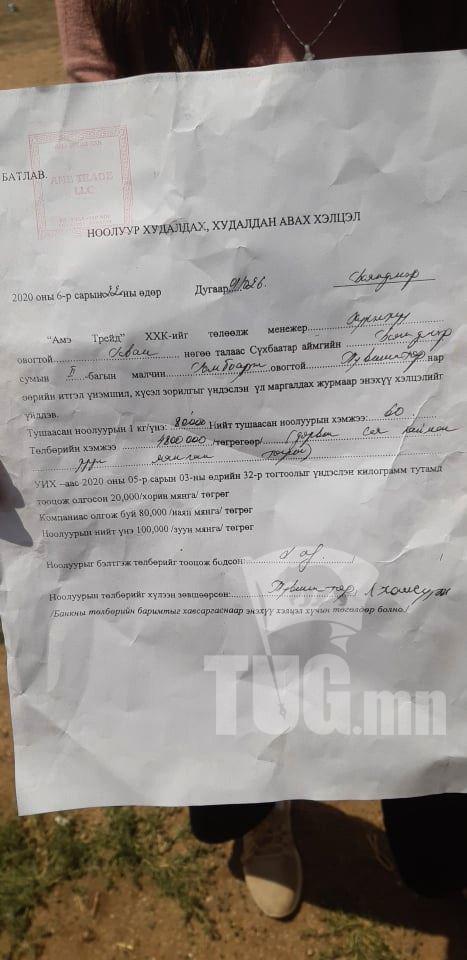 БАТЛАВ.
AME TRADE
LLC
НООЛУУР ХУДАЛДАХ, ХУДАЛДАН АВАХ ХЭЛЦЭЛ
2020 оны 6-р сарын 22 ны өдөр Дугаар Баяндэлгэр
"Амэ Трейд" ХХК-ийг төлөөлж менежер
овогтой нөгөө талаас Сүхбаатар аймгийн Баяндэлгэр
сумын II -багын малчин овогтой Түвшинтөр нар
өөрийн итгэл үнэмшил, хүсэл зорилгыг үндэслэн үл маргалдах журмаар энэхүү хэлцэлийг
үйлдэв.
Тушаасан ноолуурын 1 кг/үнэ: 80000 Нийт тушаасан ноолуурын хэмжээ: 60
Төлбөрийн хэмжээ 4800000 /төгрөгөөр/ (дөрвөн сая найман
зуун мянган төгрөг)
УИХ –аас 2020 оны 05-р сарын 03-ны өдрийн 32-р тогтоолыг үндэслэн килограмм тутамд
тооцож олгосон 20,000/хорин мянга/ төгрөг
Компаниас олгож буй 80,000 /наян мянга/ төгрөг
Ноолуурын нийт үнэ 100,000 /зуун мянга/ төгрөг
Ноолуурыг бэлтгэж төлбөрийг тооцож бодсон:
Ноолуурын төлбөрийг хүлээн зөвшөөрсөн: Түвшинтөр Лхамсүрэн
/Банкны төлбөрийн баримтыг хавсаргаснаар энэхүү хэлцэл хүчин төгөлдөр болно./
TUG.mn